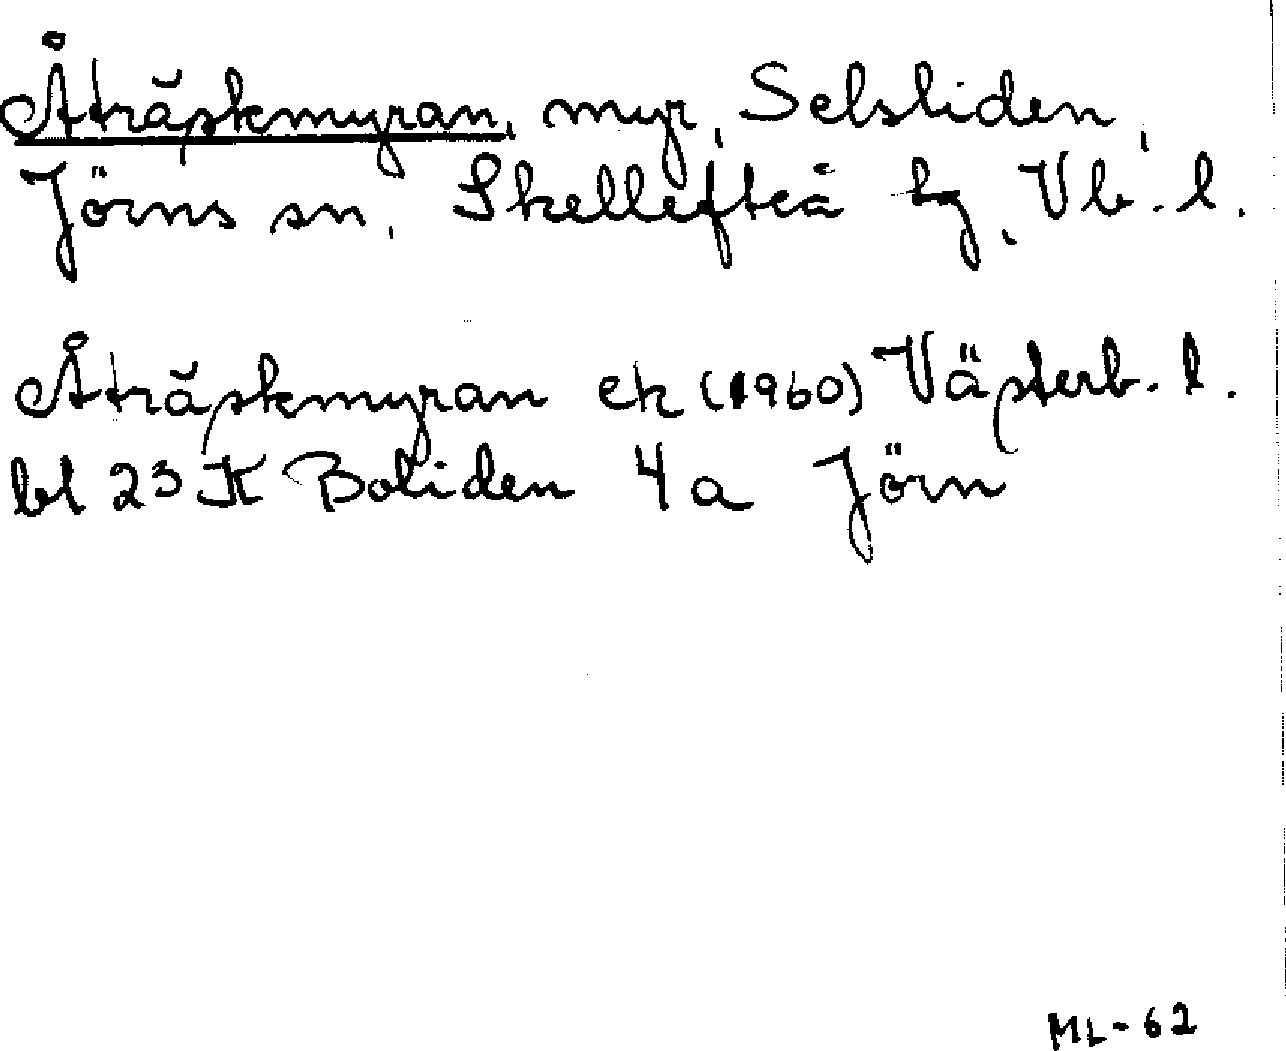 Åträskmyran, myr, Selsliden,
Jörns sn, Skellefteå tg, Vb. l.
Åträskmyran ek (1960) Västerb. l.
bl 23 K Boliden 4a Jörn
ML-62